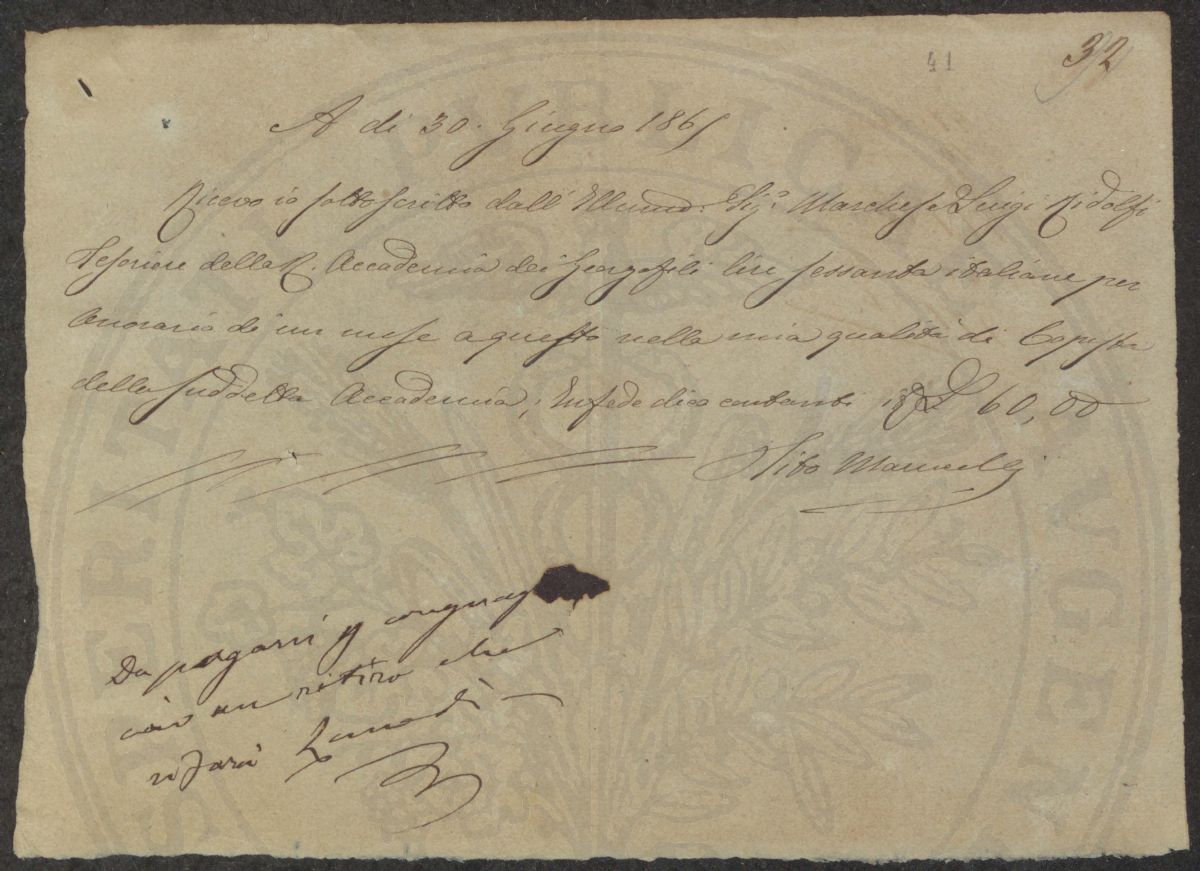 41
32
A dì 30. Giugno 1865
Ricevo io sottoscritto dall' Illmo: Sigr. Marchese Luigi Ridolfi
Tesoriere della R. Accademia dei Georgofili lire sessanta italiane per
Onorario di un mese a questo nella mia qualità di Copista
della suddetta Accademia; In fede dico contanti £ 60,00
Tito Marucelli
Da pagarsi
un ritiro che
si farà Lunedì
PUBLICAE